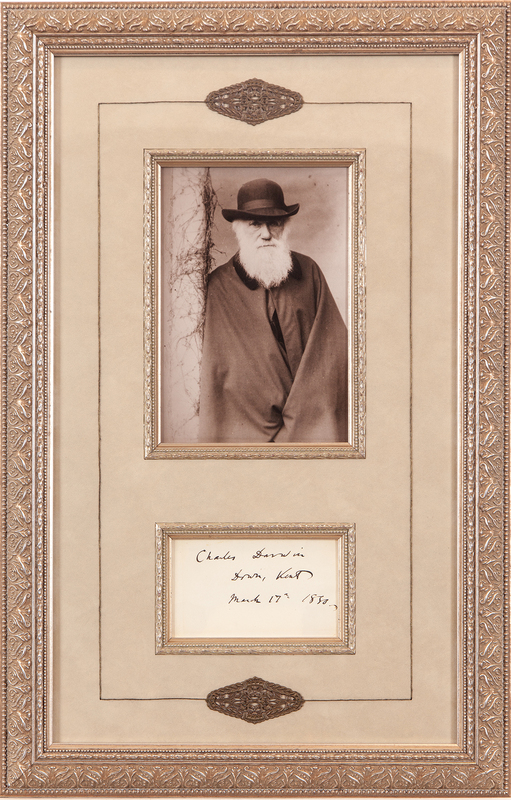 Charles Darwin
Down, Kent
March 17th 1880